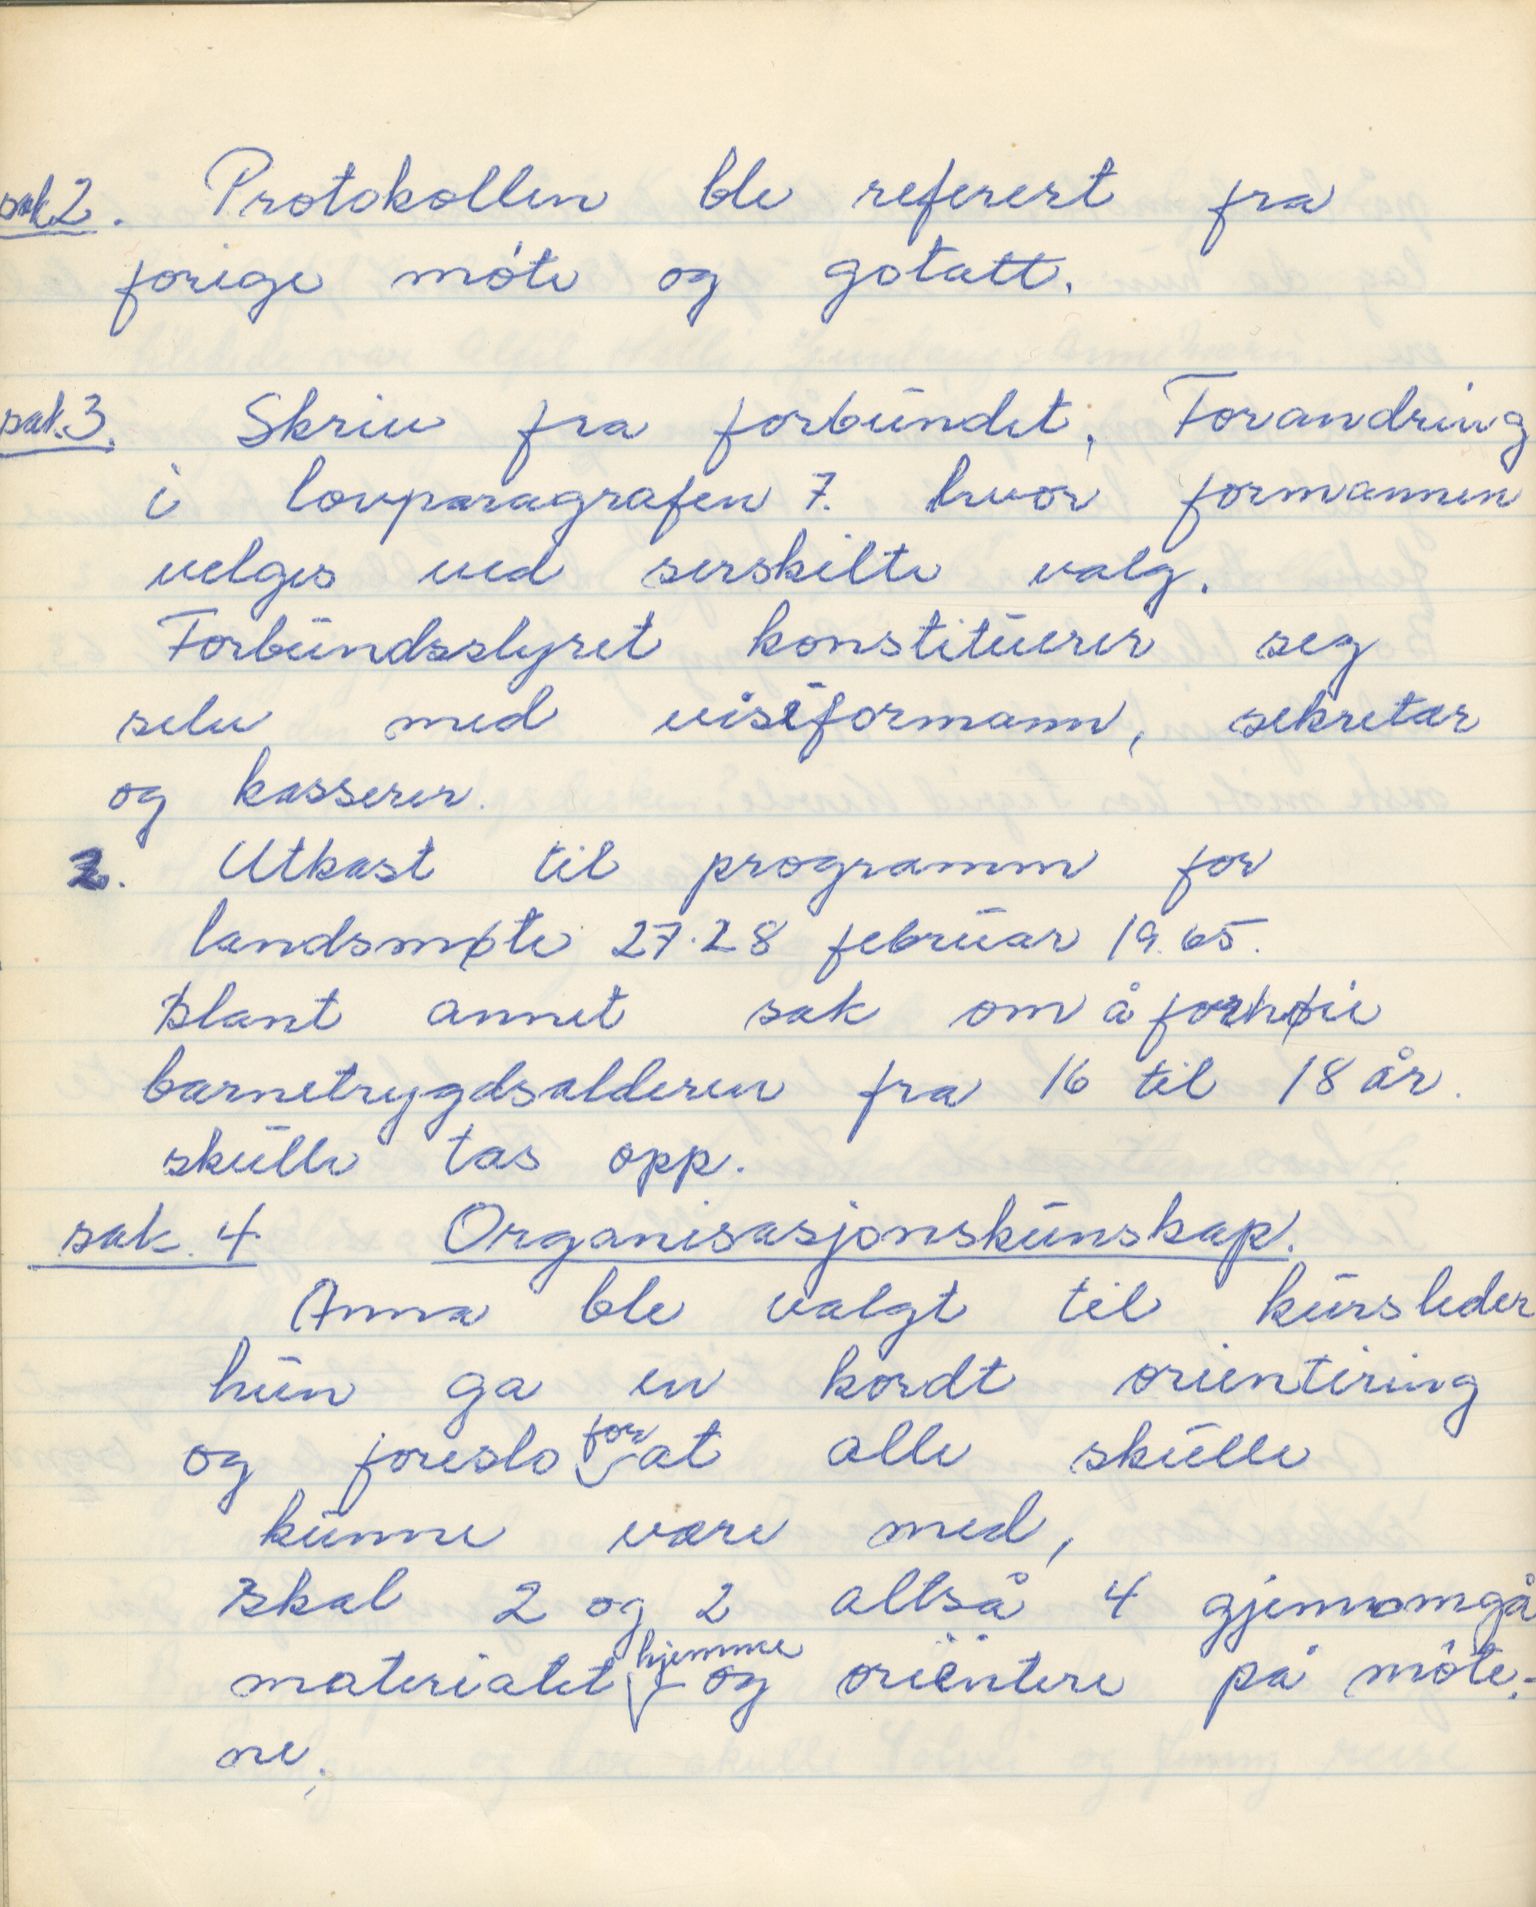 sak 2. Protokollen ble referert fra
forige møte og gotatt.
sak. 3. Skriv fra forbundet, Forandring
i lovparagrafen 7. hvor formannen
velges ved serskilte valg.
Forbundsstyret konstituerer seg
selv med viseformann, sekretær
og kasserer.
2. Utkast til programm for
landsmøte 27.28 februar 19.65.
blant annet sak om å forhøie
barnetrygdsalderen fra 16 til 18 år.
skulle tas opp.
sak. 4. Organisasjonskunskap.
Anna ble valgt til kursleder
hun ga en kordt orientering
og foreslo for at alle skulle
kunne være med,
skal 2 og 2 altså 4 gjennomgå
materialet hjemme og orientere på møte-
ne.